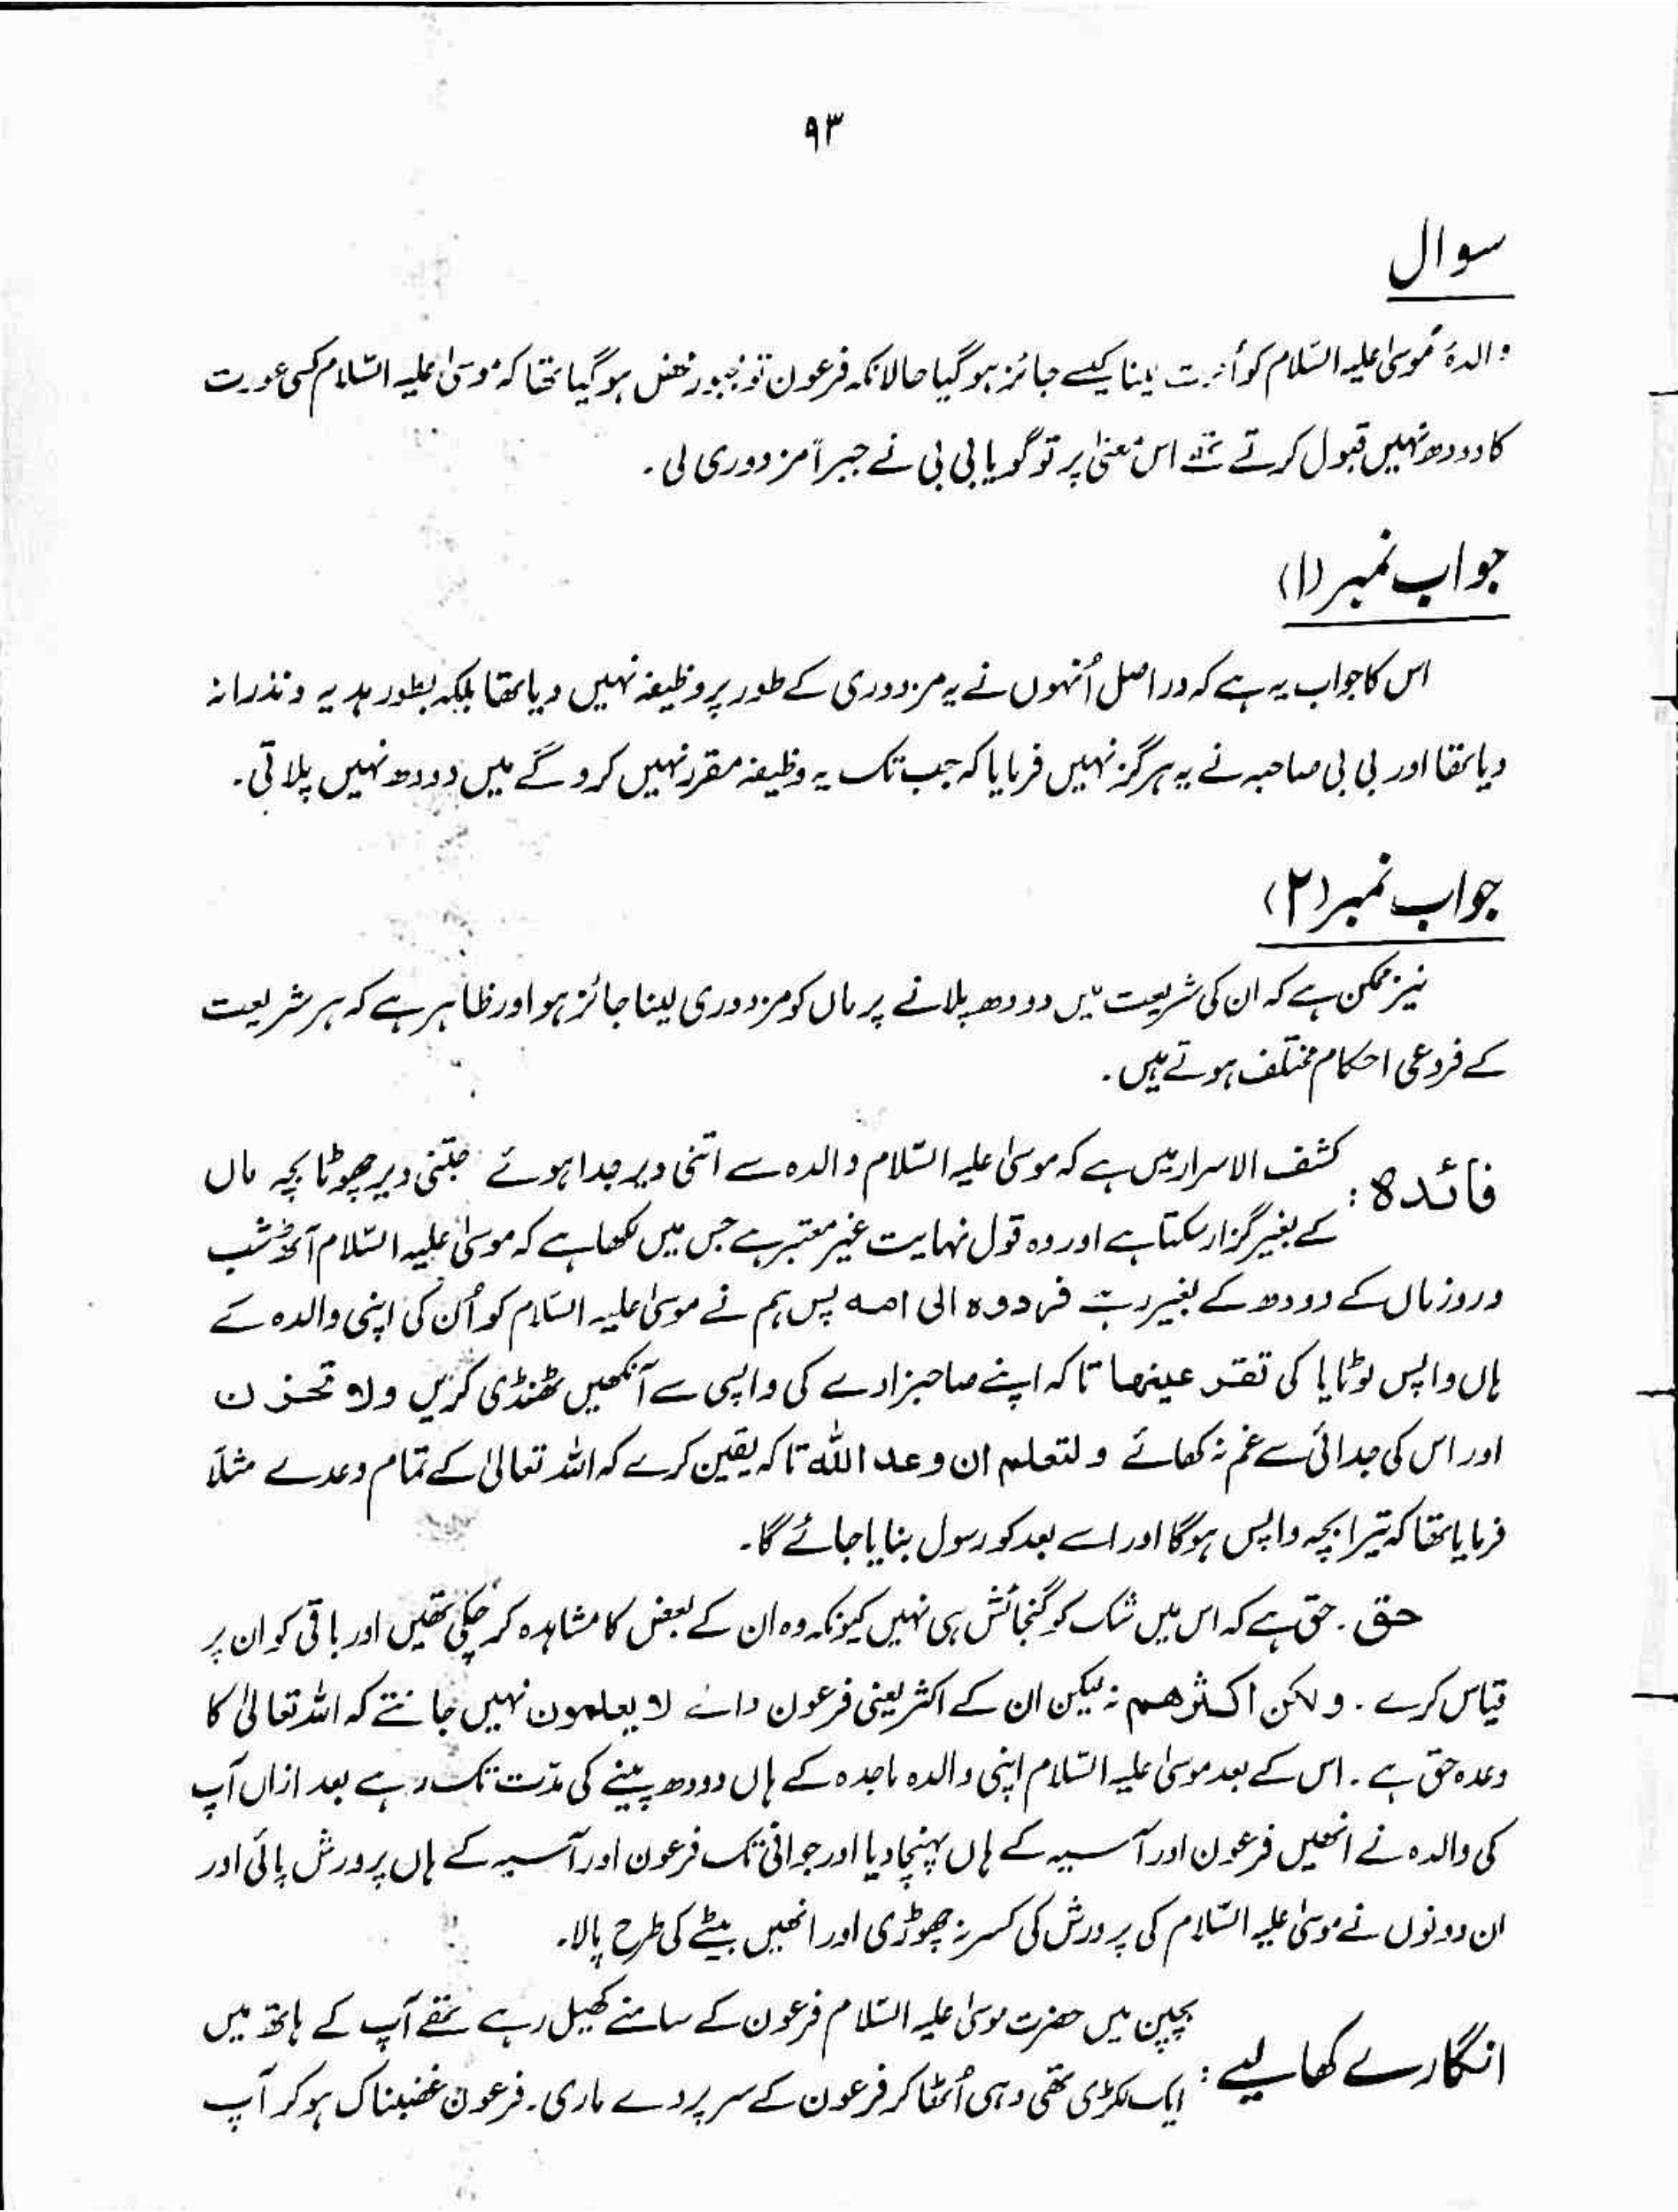 ۹۳
سوال
والدۂ مُوسیٰ علیہ السّلام کو اُجرت لینا کیسے جائز ہو گیا حالانکہ فرعون تو مجبور محض ہو گیا تھا کہ موسیٰ علیہ السّلام کسی عورت
کا دودھ نہیں قبول کرتے تھے اس معنیٰ پر تو گویا بی بی نے جبراً مزدوری لی ۔
جواب نمبر (۱)
اس کا جواب یہ ہے کہ دراصل اُنہوں نے یہ مزدوری کے طور پر وظیفہ نہیں دیا تھا بلکہ بطور ہدیہ و نذرانہ
دیا تھا اور بی بی صاحبہ نے یہ ہرگز نہیں فرمایا کہ جب تک یہ وظیفہ مقرر نہیں کرو گے میں دودھ نہیں پلاتی ۔
جواب نمبر (۲)
نیز ممکن ہے کہ ان کی شریعت میں دودھ پلانے پر ماں کو مزدوری لینا جائز ہو اور ظاہر ہے کہ ہر شریعت
کے فروعی احکام مختلف ہوتے ہیں ۔
فائدہ : کشف الاسرار میں ہے کہ موسیٰ علیہ السّلام والدہ سے اتنی دیر جدا ہوئے جتنی دیر چھوٹا بچہ ماں
کے بغیر گزار سکتا ہے اور وہ قول نہایت غیر معتبر ہے جس میں لکھا ہے کہ موسیٰ علیہ السّلام آٹھ شب
و روز ماں کے دودھ کے بغیر رہے فرددہ الی امہ پس ہم نے موسیٰ علیہ السّلام کو اُن کی اپنی والدہ کے
ہاں واپس لوٹایا کی تقر عینھا تاکہ اپنے صاحبزادے کی واپسی سے آنکھیں ٹھنڈی کریں ولا تحزن
اور اس کی جدائی سے غم نہ کھائے ولتعلم ان وعد اللہ تاکہ یقین کرے کہ اللہ تعالیٰ کے تمام وعدے مثلاً
فرمایا تھا کہ تیرا بچہ واپس ہوگا اور اسے بعد کو رسول بنایا جائے گا۔
حق ۔ حق ہے کہ اس میں شک کو گنجائش ہی نہیں کیونکہ وہ ان کے بعض کا مشاہدہ کر چکی تھیں اور باقی کو ان پر
قیاس کرے ۔ ولکن اکثرھم نہ لیکن ان کے اکثر یعنی فرعون والے لا یعلمون نہیں جانتے کہ اللہ تعالیٰ کا
وعدہ حق ہے ۔ اس کے بعد موسیٰ علیہ السّلام اپنی والدہ ماجدہ کے ہاں دودھ پینے کی مدّت تک رہے بعد ازاں آپ
کی والدہ نے انھیں فرعون اور آسیہ کے ہاں پہنچا دیا اور جوانی تک فرعون اور آسیہ کے ہاں پرورش پائی اور
ان دونوں نے موسیٰ علیہ السّلام کی پرورش کی کسر نہ چھوڑی اور انھیں بیٹے کی طرح پالا۔
انگارے کھا لیے : بچپن میں حضرت موسیٰ علیہ السّلام فرعون کے سامنے کھیل رہے تھے آپ کے ہاتھ میں
ایک لکڑی تھی وہی اُٹھا کر فرعون کے سر پر دے ماری ۔ فرعون غضبناک ہو کر آپ